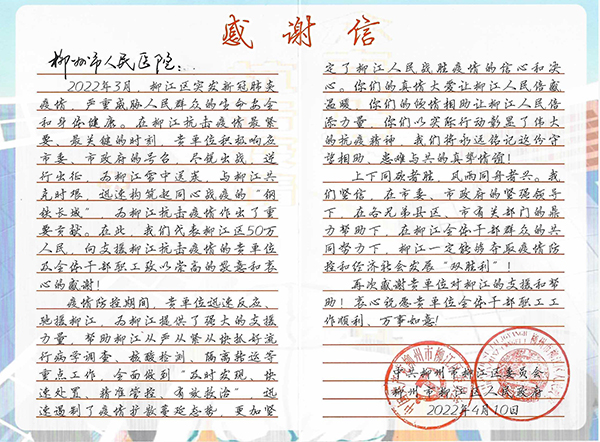 感谢信
柳州市人民医院:
2022年3月，柳江区突发新冠肺炎
疫情，严重威胁人民群众的生命安全
和身体健康。在柳江抗击疫情最紧
要、最关键的时刻，贵单位积极响应
市委、市政府的号召，尽锐出战，逆
行出征，为柳江雪中送炭，与柳江共
克时艰，迅速构筑起同心战疫的“钢
铁长城”，为柳江抗击疫情作出了重
要贡献。在此，我们代表柳江区50万
人民，向支援柳江抗击疫情的贵单位
及全体干部职工致以崇高的敬意和衷
心的感谢！
疫情防控期间，贵单位迅速反应、
驰援柳江，为柳江提供了强大的支援
力量，帮助柳江从严从紧从快抓好流
行病学调查、核酸检测、隔离转运等
重点工作，全面做到“及时发现、快
速处置、精准管控、有效救治”，迅
速遏制了疫情扩散蔓延态势，更加坚
定了柳江人民战胜疫情的信心和决
心。你们的真情大爱让柳江人民倍感
温暖，你们的倾情相助让柳江人民倍
添力量，你们以实际行动彰显了伟大
的抗疫精神，我们将永远铭记这份守
望相助、患难与共的真挚情谊！
上下同欲者胜，风雨同舟者兴。我
们坚信，在市委、市政府的坚强领导
下，在各兄弟县区、市直有关部门的鼎
力帮助下，在柳江全体干部群众的共
同努力下，柳江一定能够夺取疫情防
控和经济社会发展“双胜利”！
再次感谢贵单位对柳江的支援和帮
助！衷心祝愿贵单位全体干部职工工
作顺利、万事如意！
中共柳州市柳江区委员会
柳州市柳江区人民政府
2022年4月10日